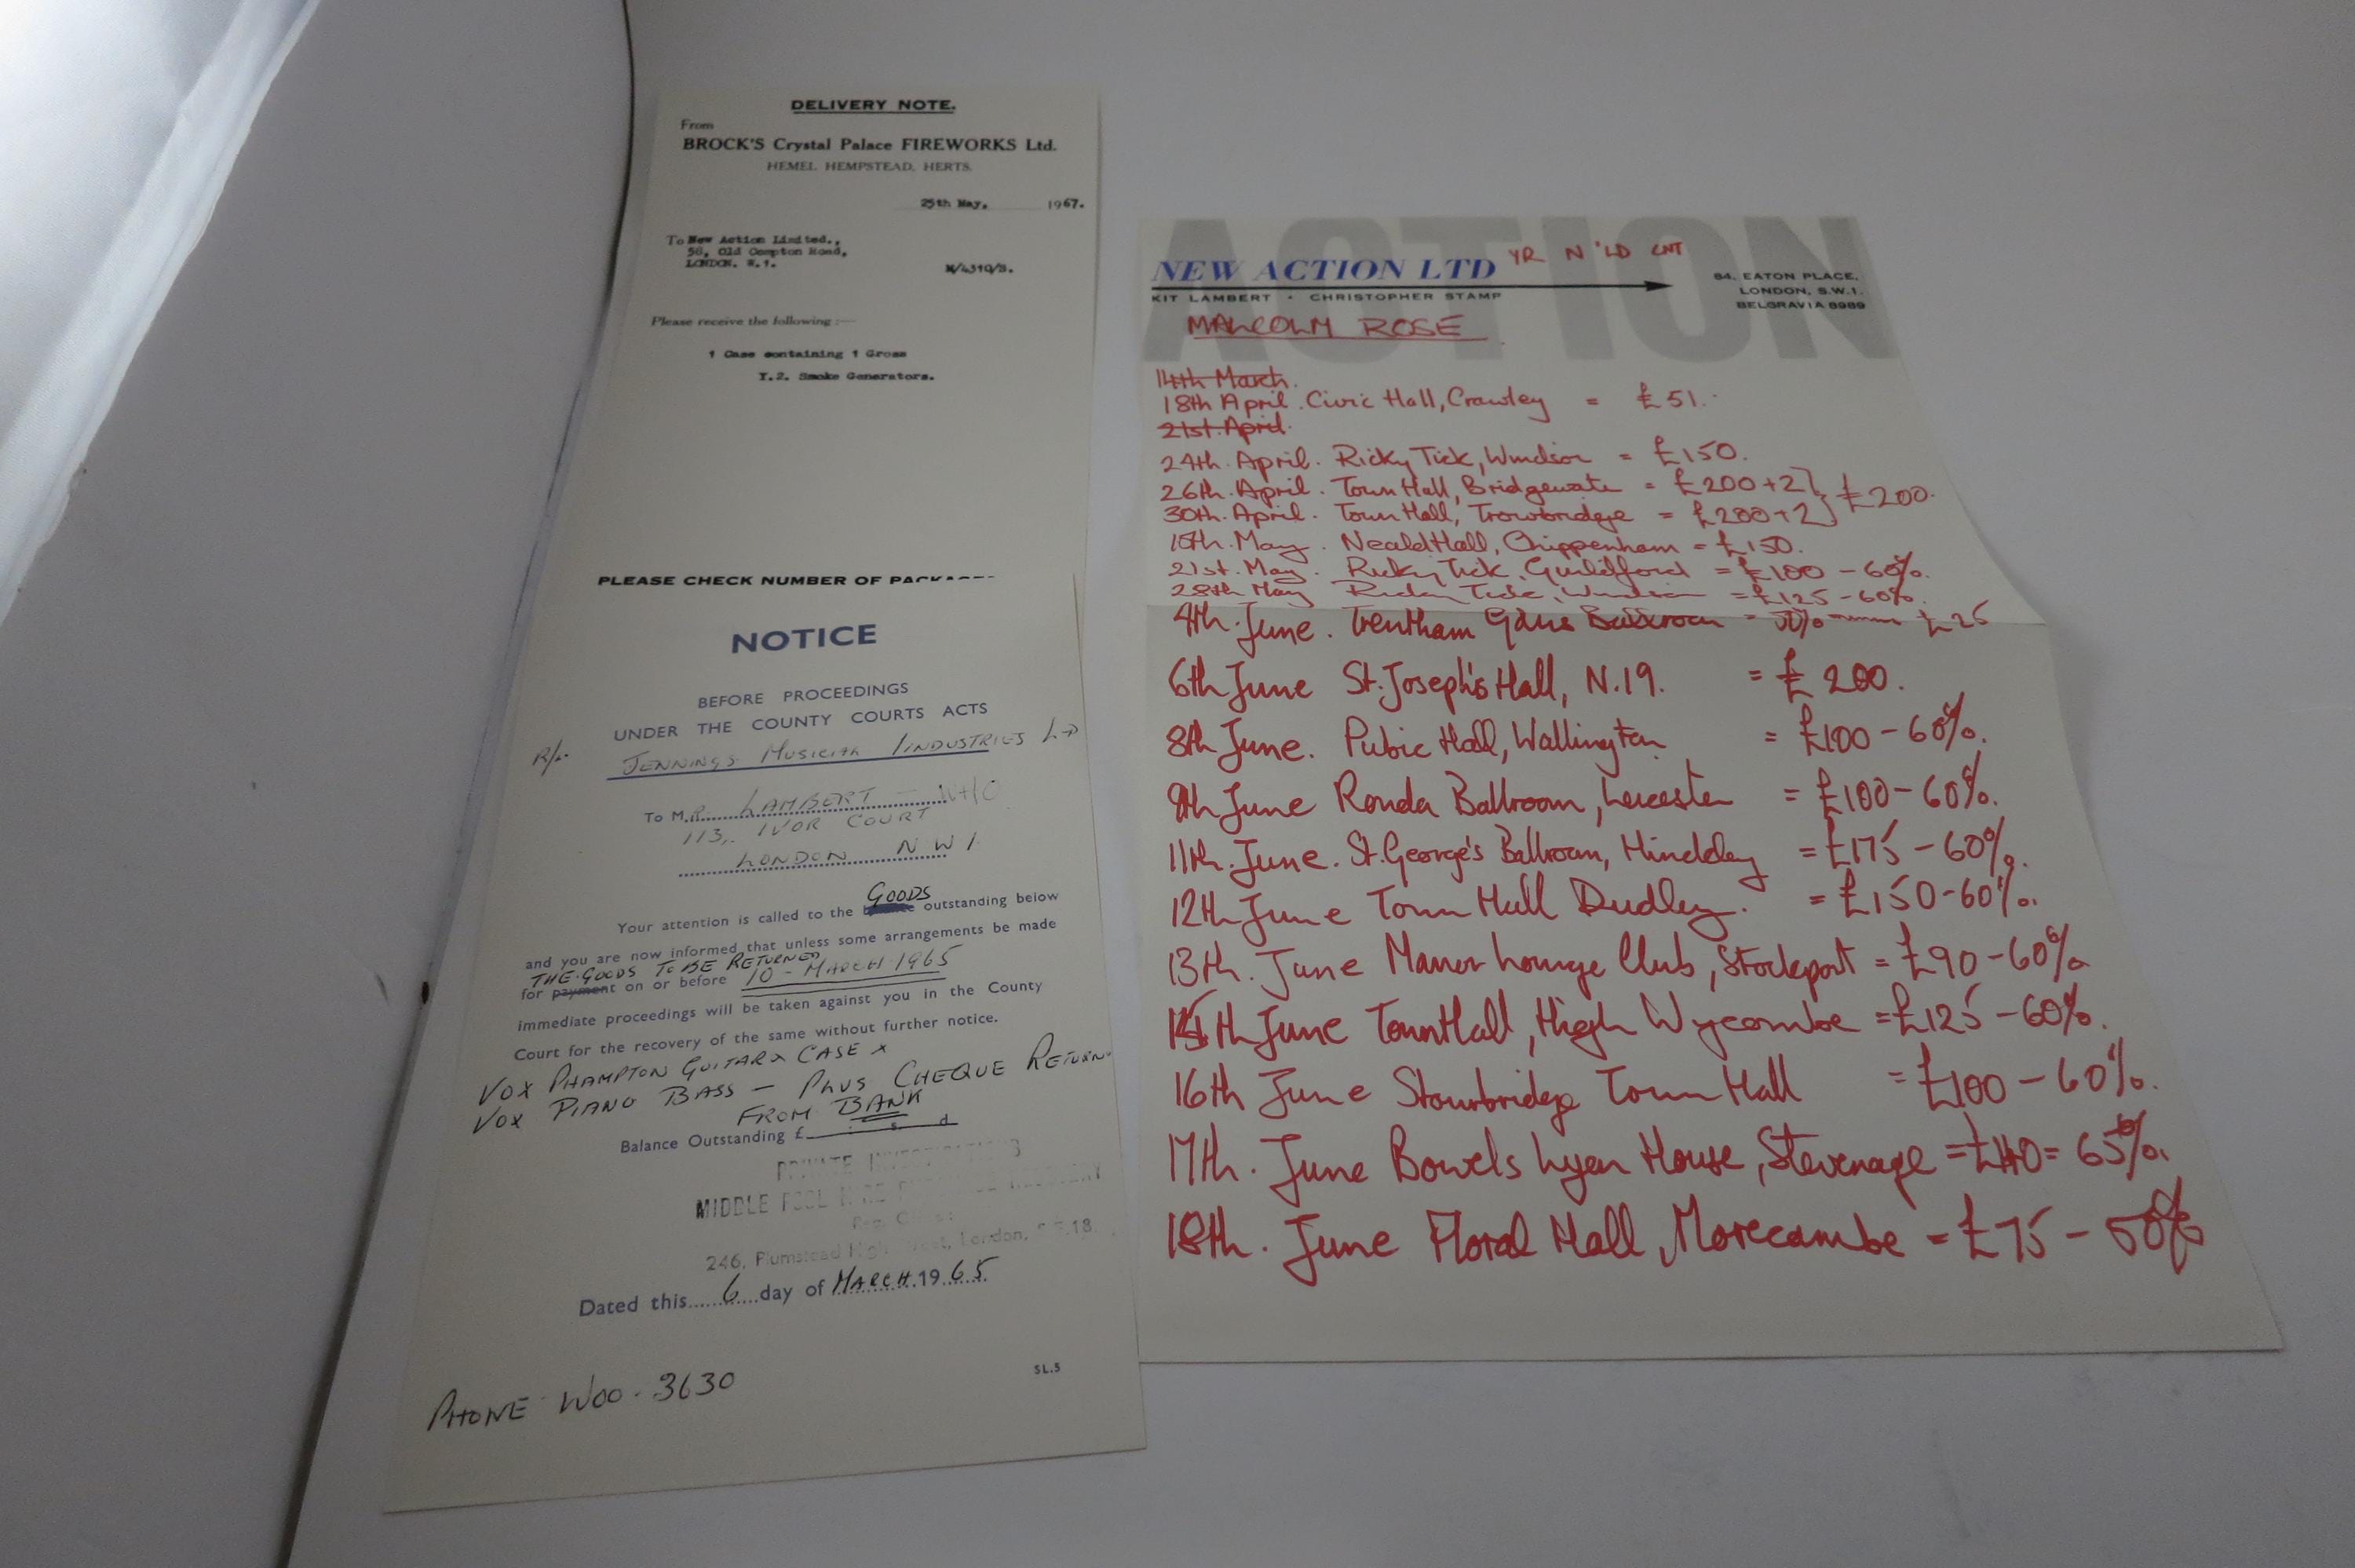 DELIVERY NOTE.
From
BROCK'S Crystal Palace FIREWORKS Ltd.
HEMEL HEMPSTEAD, HERTS.
25th May, 1967.
To New Action Limited.,
58, Old Compton Road,
LONDON. W.1.
Please receive the following :—
1 Case containing 1 Gross
Y.2. Smoke Generators.
PLEASE CHECK NUMBER OF
NOTICE
BEFORE PROCEEDINGS
UNDER THE COUNTY COURTS ACTS
JENNINGS MUSICIAL INDUSTRIES LTD
To MR. LAMBERT — WHO
113, IVOR COURT
LONDON N W 1
GOODS
Your attention is called to the outstanding below
and you are now informed that unless some arrangements be made
THE GOODS TO BE RETURNED
for payment on or before 10 - MARCH 1965
immediate proceedings will be taken against you in the County
Court for the recovery of the same without further notice.
VOX PHAMPTON GUITAR X CASE X
VOX PIANO BASS — PLUS CHEQUE RETURN
FROM BANK
Balance Outstanding £ : s. d
PRIVATE
MIDDLE
246, Plumstead High Street, London, S.E.18
Dated this 6 day of MARCH 1965
SL.5
PHONE WOO. 3630
ACTION
YR N 'LD CNT
NEW ACTION LTD
KIT LAMBERT · CHRISTOPHER STAMP
84, EATON PLACE,
LONDON, S.W.1.
BELGRAVIA 8989
MALCOLM ROSE
14th March.
18th April. Civic Hall, Crawley = £51.
21st April.
24th. April. Ricky Tick, Windsor = £150.
26th. April. Town Hall, Bridgewate = £200+2 } £200.
30th. April. Town Hall, Trowbridge = £200+2 }
May. Neald Hall, Chippenham = £150.
21st. May. Ricky Tick, Guildford = £100 - 60%.
28th May Ricky Tick, Windsor = £125 - 60%.
4th. June. Trentham Gdns Ballroom = 50% £25
6th June St. Joseph's Hall, N.19. = £200.
8th June. Pubic Hall, Wallington = £100 - 60%.
9th June Ronda Ballroom, Leicester = £100 - 60%.
11th. June. St. George's Ballroom, Hinckley = £175 - 60%.
12th June Town Hall Dudley. = £150 - 60%.
13th. June Manor Lounge Club, Stockport = £90 - 60%
15th June Town Hall, High Wycombe = £125 - 60%.
16th June Stourbridge Town Hall = £100 - 60%.
17th. June Bowels Lyen House, Stevenage = £110 = 65%.
18th. June Floral Hall, Morecambe = £75 - 50%